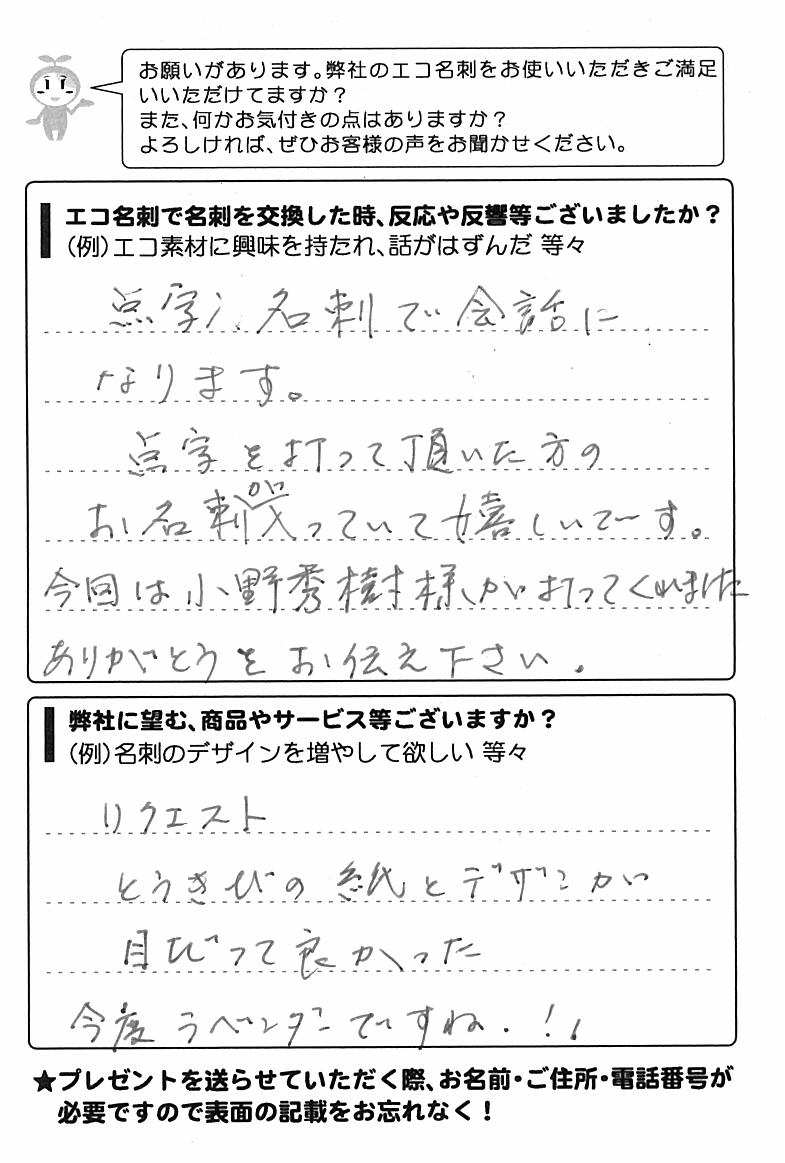 お願いがあります。弊社のエコ名刺をお使いいただきご満足
いいただけてますか？
また、何かお気付きの点はありますか？
よろしければ、ぜひお客様の声をお聞かせください。
エコ名刺で名刺を交換した時、反応や反響等ございましたか？
（例）エコ素材に興味を持たれ、話がはずんだ 等々
点字入名刺で会話に
なります。
点字を打って頂いた方の
お名刺が入っていて嬉しいでーす。
今回は小野秀樹様が打ってくれました
ありがとうをお伝え下さい.
弊社に望む、商品やサービス等ございますか？
（例）名刺のデザインを増やして欲しい 等々
リクエスト
とうきびの紙とデザインが
目だって良かった
今度ラベンダーですね.!!
★プレゼントを送らせていただく際、お名前・ご住所・電話番号が
必要ですので表面の記載をお忘れなく！